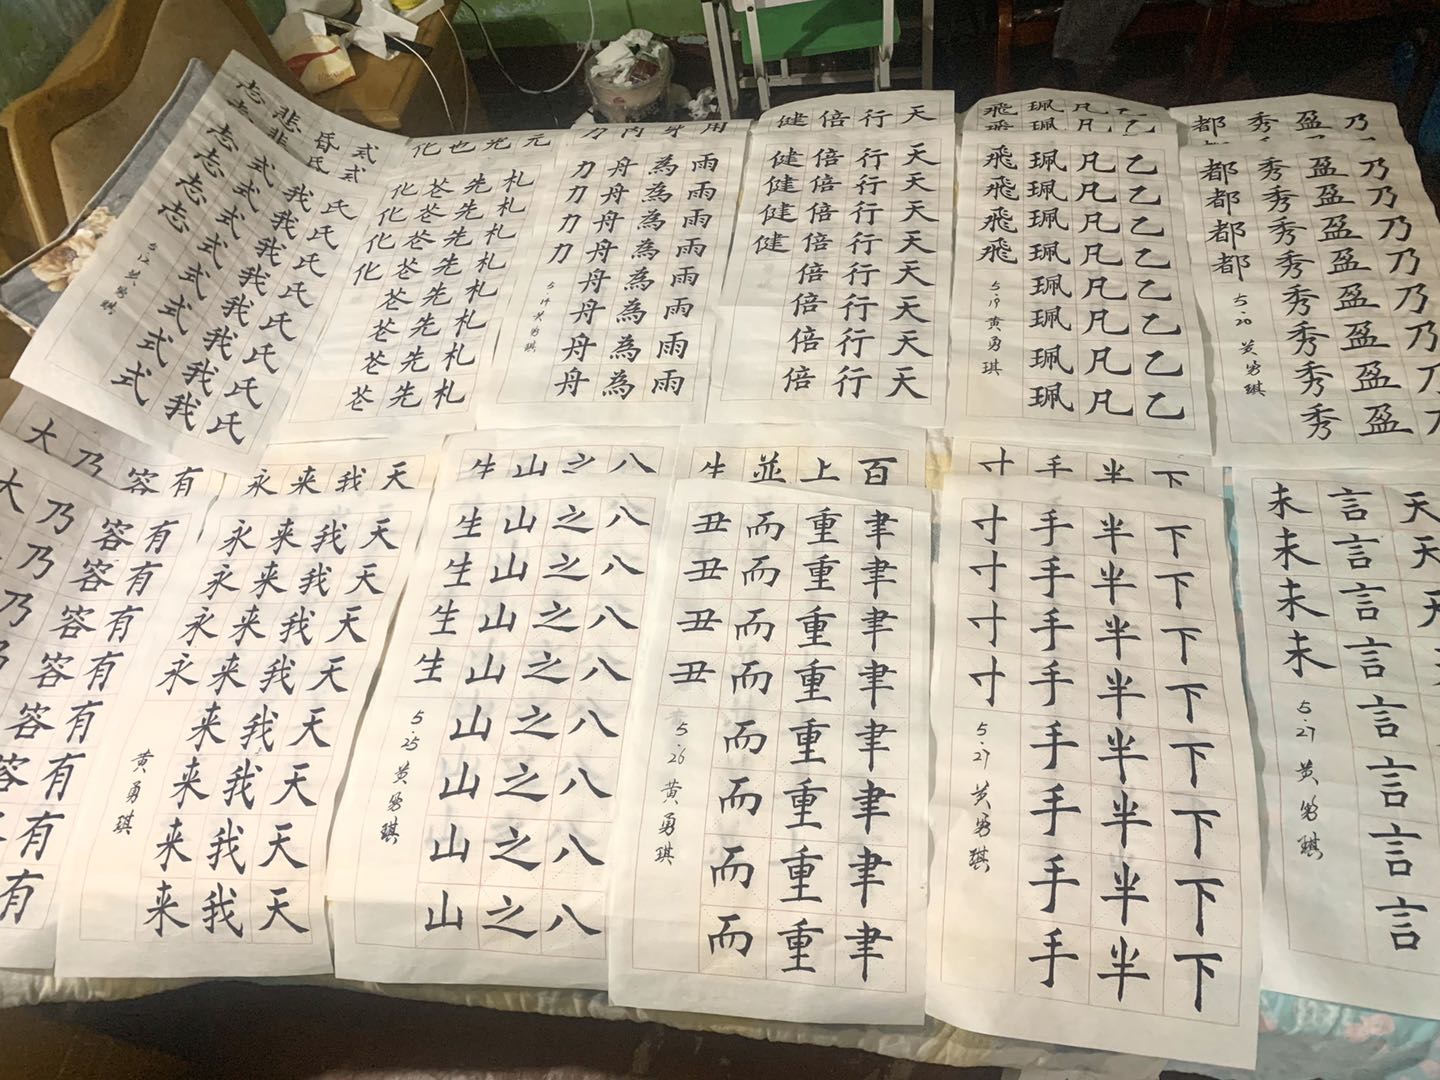 式式
昏氏
悲悲
志志
氏氏氏氏氏氏氏氏
我我我我我我我我
式式式式式式式式
志志志志
黄勇琪
元
先
也
化
札札札札札札札札
先先先先先先先先
苍苍苍苍苍苍苍苍
化化化化
用
身
内
力
雨雨雨雨雨雨雨雨
為為為為為為為為
舟舟舟舟舟舟舟舟
力力力力
黄勇琪
天
行
倍
健
天天天天天天天天
行行行行行行行行
倍倍倍倍倍倍倍倍
健健健健
乙乙
凡凡
珮珮
飛飛
乙乙乙乙乙乙乙乙
凡凡凡凡凡凡凡凡
珮珮珮珮珮珮珮珮
飛飛飛飛
5.19 黄勇琪
乃
盈
秀
都
乃乃乃乃乃乃乃乃
盈盈盈盈盈盈盈盈
秀秀秀秀秀秀秀秀
都都都都
5.20 黄勇琪
有
容
乃
大
有有有有有有有有
容容容容容容容
乃乃乃
大
天
我
来
永
天天天天天天天天
我我我我我我我我
来来来来来来来来
永永永永
黄勇琪
八
之
山
生
八八八八八八八八
之之之之之之之之
山山山山山山山山
生生生生
5.25 黄勇琪
百
上
並
生
聿聿聿聿聿聿聿聿
重重重重重重重重
而而而而而而而而
丑丑丑丑
5.26 黄勇琪
下
半
手
寸
下下下下下下下下
半半半半半半半半
手手手手手手手手
寸寸寸寸
5.27 黄勇琪
天天天
言言言言言言言言
未未未未
5.27 黄勇琪